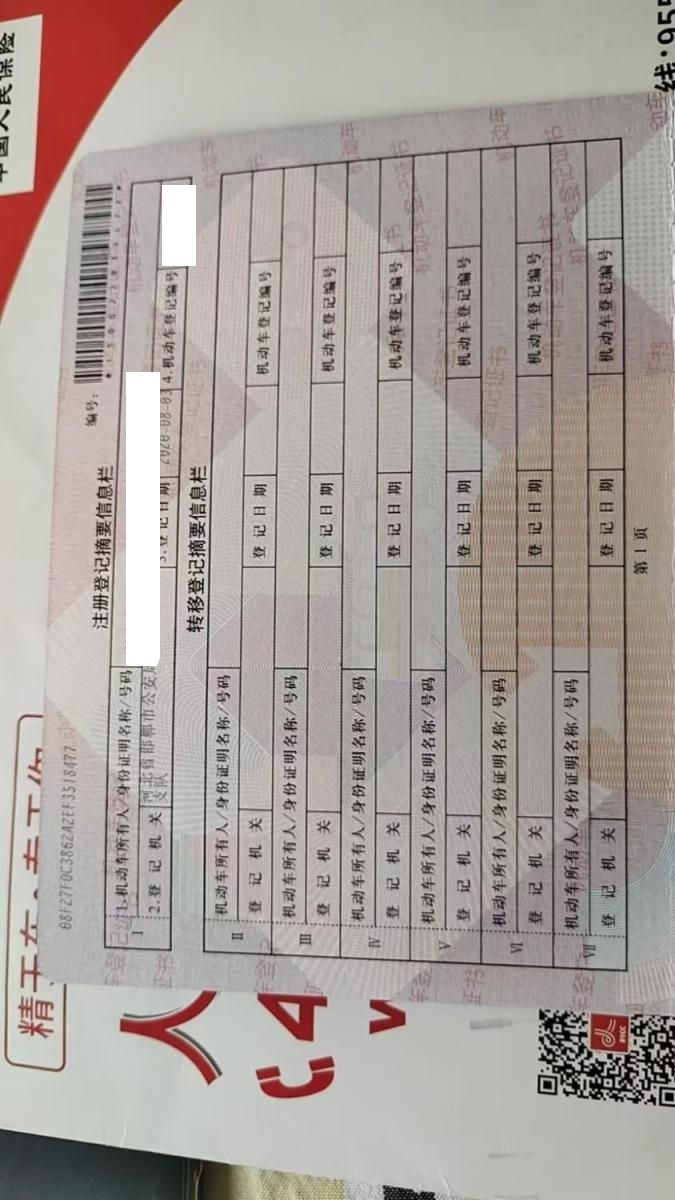 中国人民保险
08F27F0C3862A2EF3518477
编号：
注册登记摘要信息栏
I
1.机动车所有人/身份证明名称/号码
2.登记机关
河北省邯郸市公安局
支队
登记日期
2020-08-03
4.机动车登记编号
转移登记摘要信息栏
II
机动车所有人/身份证明名称/号码
登记机关
登记日期
机动车登记编号
III
机动车所有人/身份证明名称/号码
登记机关
登记日期
机动车登记编号
IV
机动车所有人/身份证明名称/号码
登记机关
登记日期
机动车登记编号
V
机动车所有人/身份证明名称/号码
登记机关
登记日期
机动车登记编号
VI
机动车所有人/身份证明名称/号码
登记机关
登记日期
机动车登记编号
VII
机动车所有人/身份证明名称/号码
登记机关
登记日期
机动车登记编号
第1页
PICC
线:955